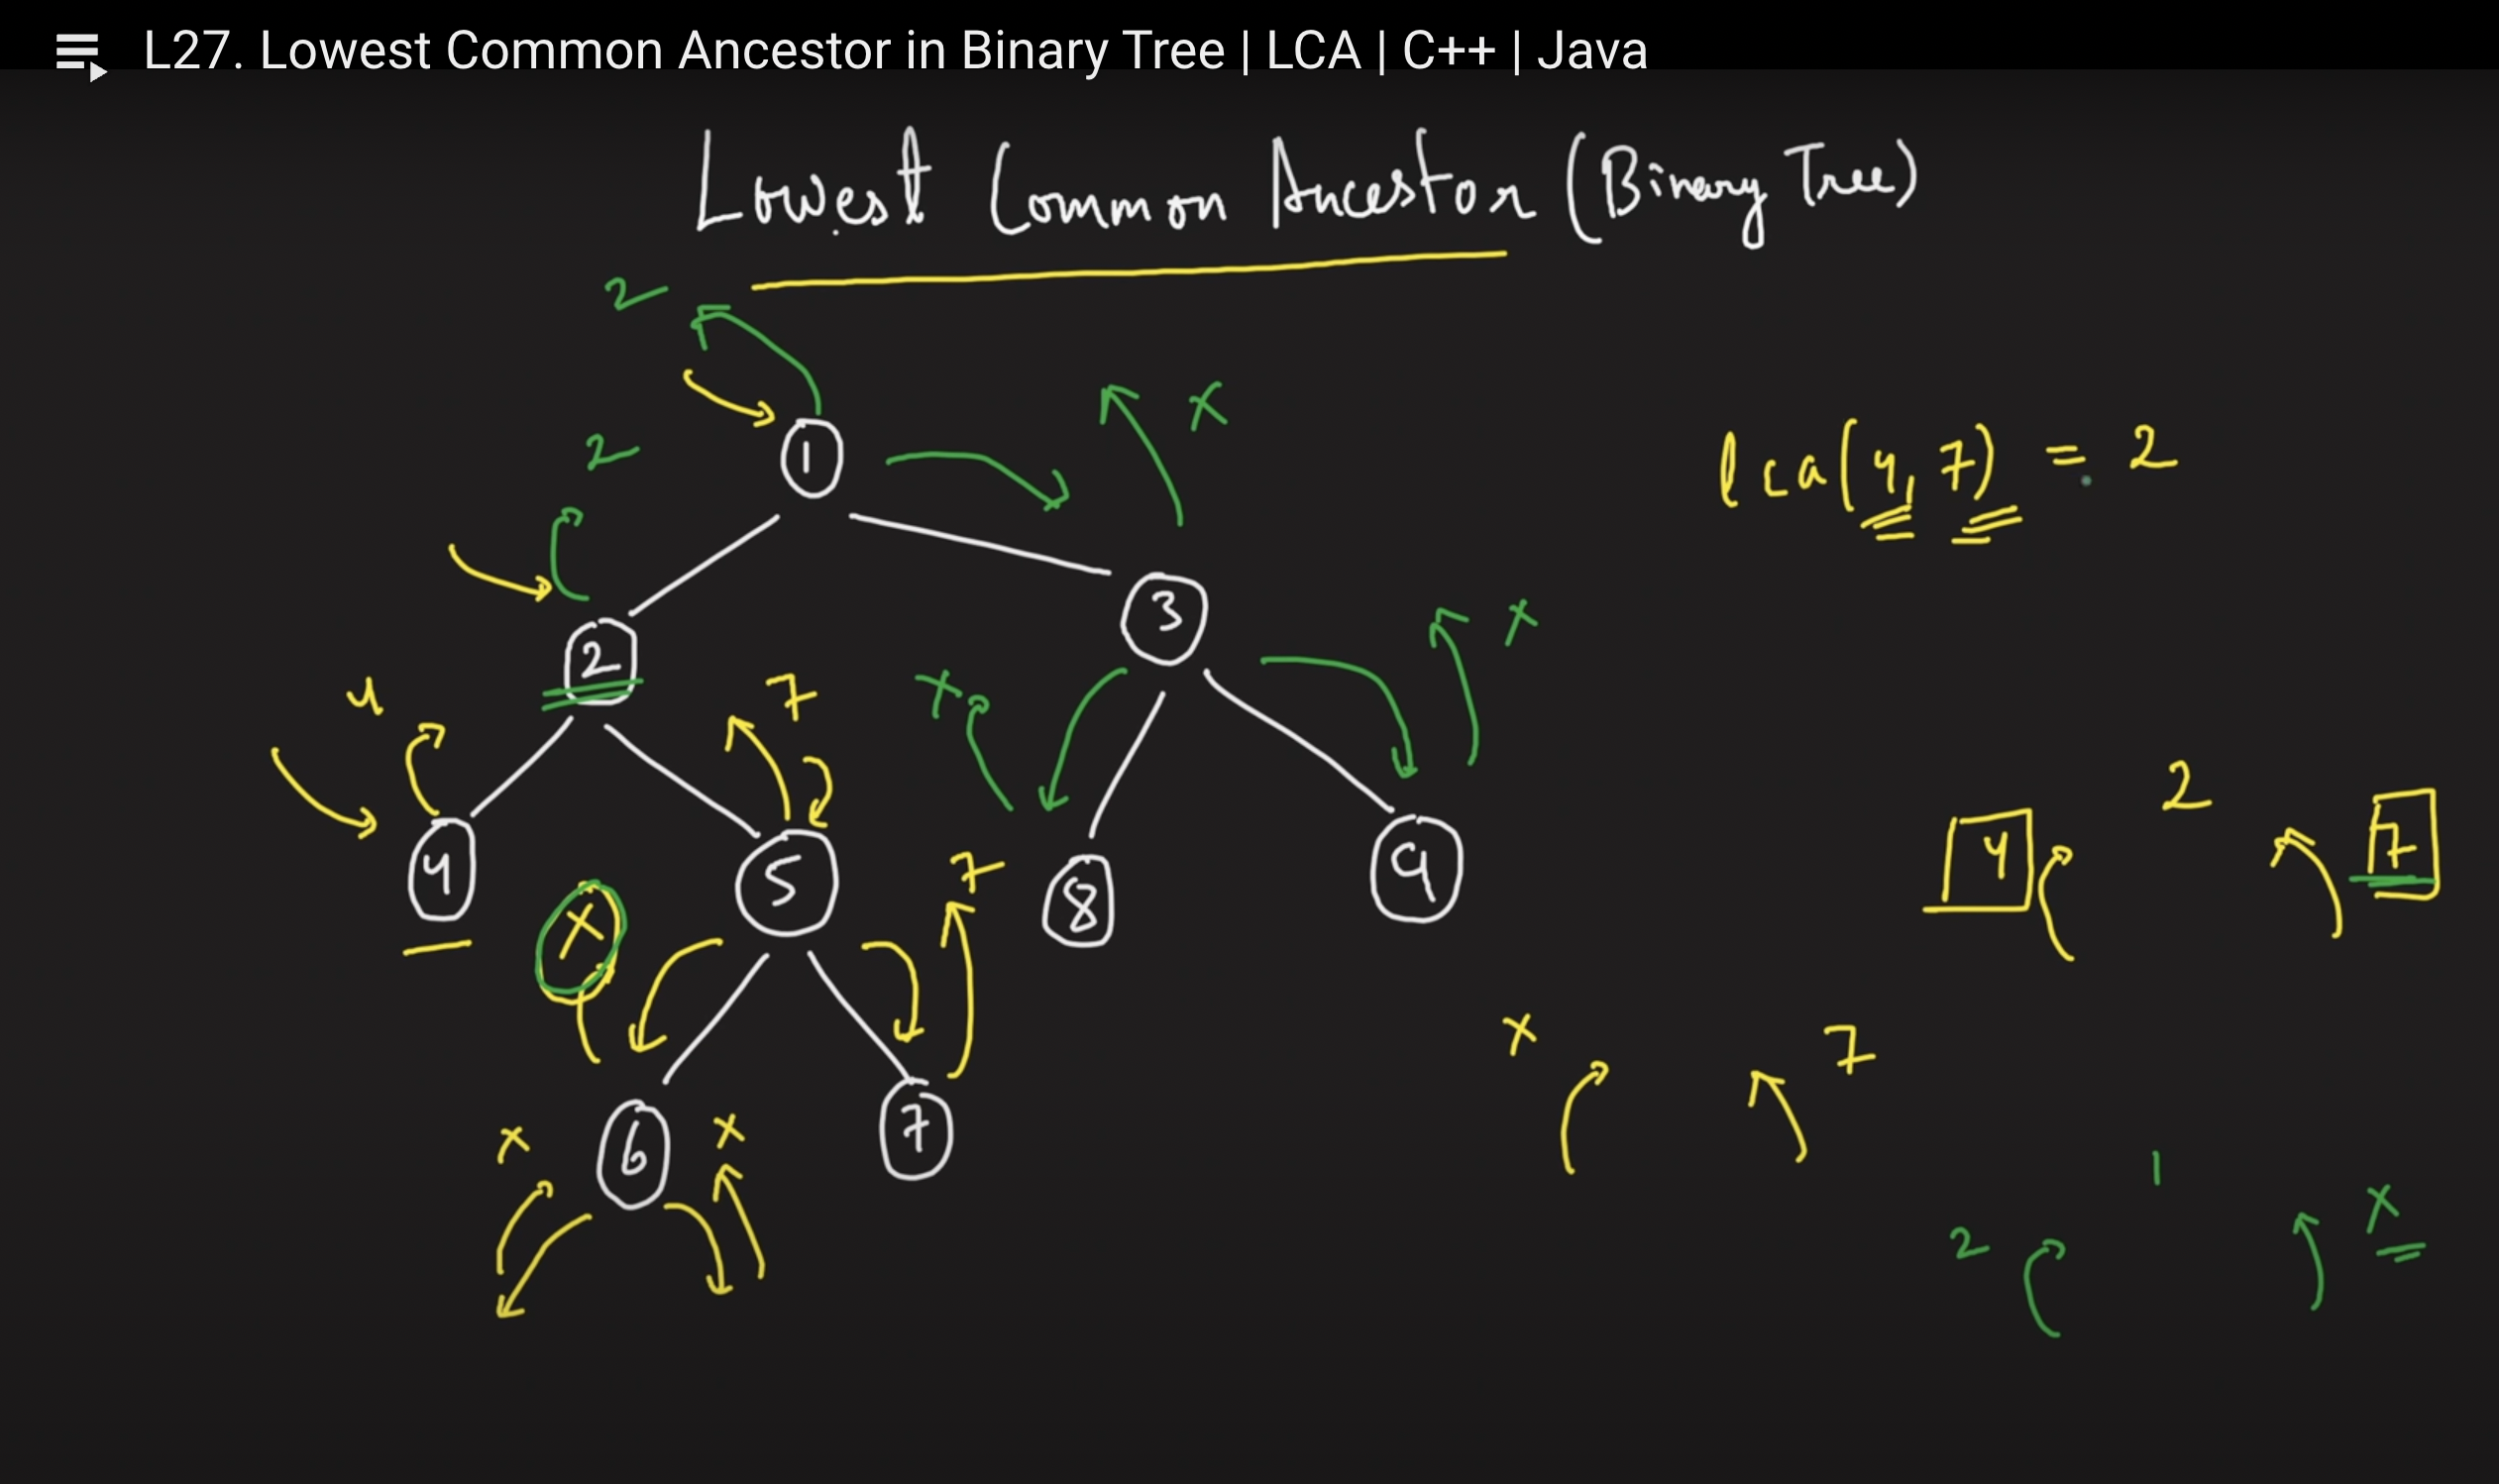 L27. Lowest Common Ancestor in Binary Tree | LCA | C++ | Java
Lowest Common Ancestor (Binary Tree)
2
x
2
1
lca(4, 7) = 2
3
x
2
4
7
x
2
4
7
4
5
7
8
9
x
x
7
6
7
x
x
1
2
x